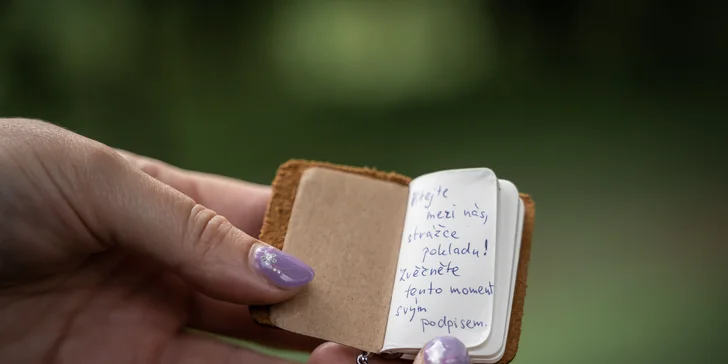 Vítejte
mezi nás,
strážce
pokladu!
Zvěčněte
tento moment
svým
podpisem.